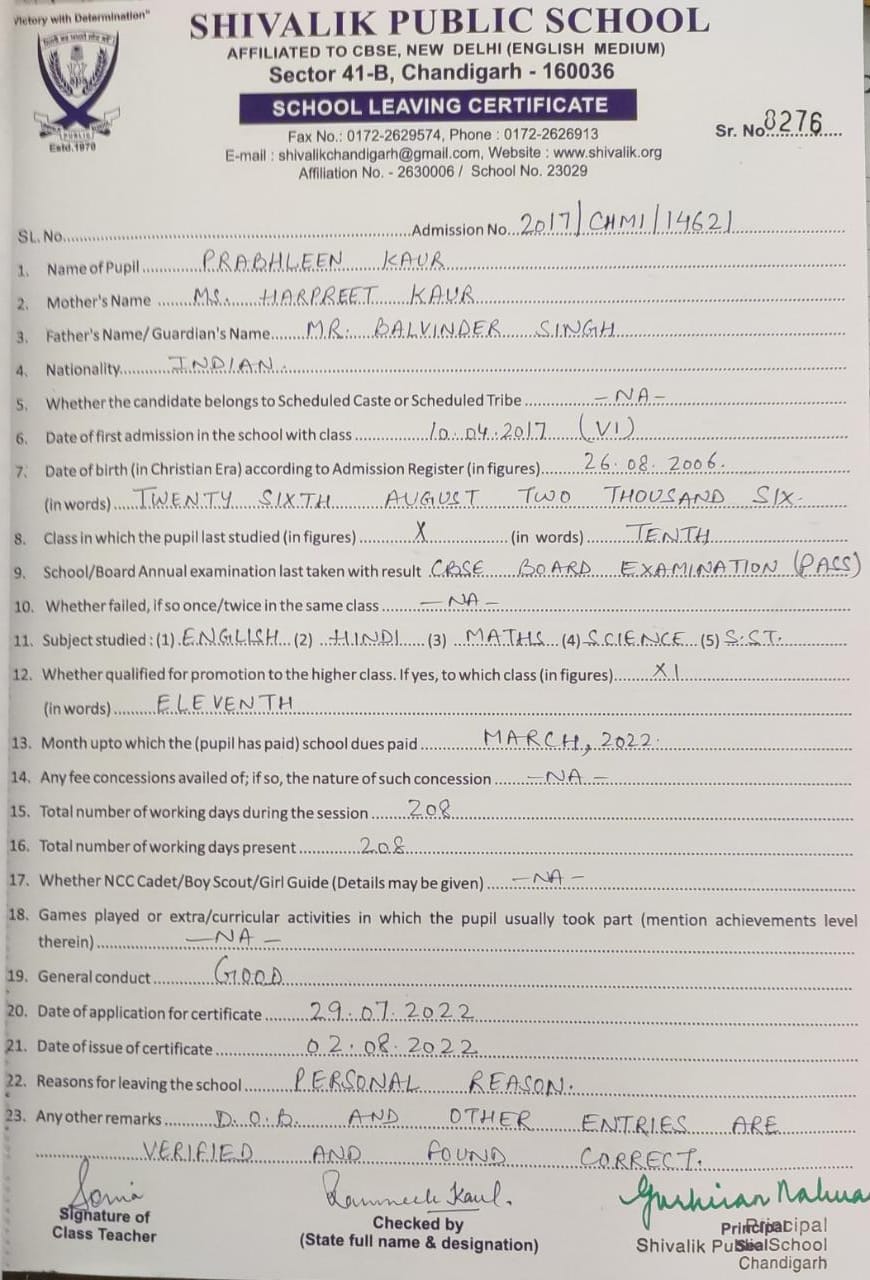 Victory with Determination"
SHIVALIK PUBLIC SCHOOL
AFFILIATED TO CBSE, NEW DELHI (ENGLISH MEDIUM)
Sector 41-B, Chandigarh - 160036
SCHOOL LEAVING CERTIFICATE
Estd.1970
Fax No.: 0172-2629574, Phone : 0172-2626913
Sr. No. 8276
E-mail : shivalikchandigarh@gmail.com, Website : www.shivalik.org
Affiliation No. - 2630006 / School No. 23029
SL. No. Admission No. 2017/CHMI/14621
1. Name of Pupil PRABHLEEN KAUR
2. Mother's Name MS. HARPREET KAUR
3. Father's Name/ Guardian's Name MR. BALVINDER SINGH
4. Nationality INDIAN.
5. Whether the candidate belongs to Scheduled Caste or Scheduled Tribe -NA-
6. Date of first admission in the school with class 10.04.2017 (VI)
7. Date of birth (in Christian Era) according to Admission Register (in figures) 26.08.2006.
(in words) TWENTY SIXTH AUGUST TWO THOUSAND SIX.
8. Class in which the pupil last studied (in figures) X (in words) TENTH
9. School/Board Annual examination last taken with result CBSE BOARD EXAMINATION (PASS)
10. Whether failed, if so once/twice in the same class -NA-
11. Subject studied : (1) ENGLISH (2) HINDI (3) MATHS (4) SCIENCE (5) S.ST.
12. Whether qualified for promotion to the higher class. If yes, to which class (in figures) XI
(in words) ELEVENTH
13. Month upto which the (pupil has paid) school dues paid MARCH, 2022.
14. Any fee concessions availed of; if so, the nature of such concession -NA-
15. Total number of working days during the session 208
16. Total number of working days present 208
17. Whether NCC Cadet/Boy Scout/Girl Guide (Details may be given) -NA-
18. Games played or extra/curricular activities in which the pupil usually took part (mention achievements level
therein) -NA-
19. General conduct GOOD
20. Date of application for certificate 29.07.2022
21. Date of issue of certificate 02.08.2022
22. Reasons for leaving the school PERSONAL REASON.
23. Any other remarks D.O.B. AND OTHER ENTRIES ARE
VERIFIED AND FOUND CORRECT.
Sonia
Signature of
Class Teacher
Kaul.
Checked by
(State full name & designation)
Principal
Principal
Seal
Shivalik Public School
Chandigarh